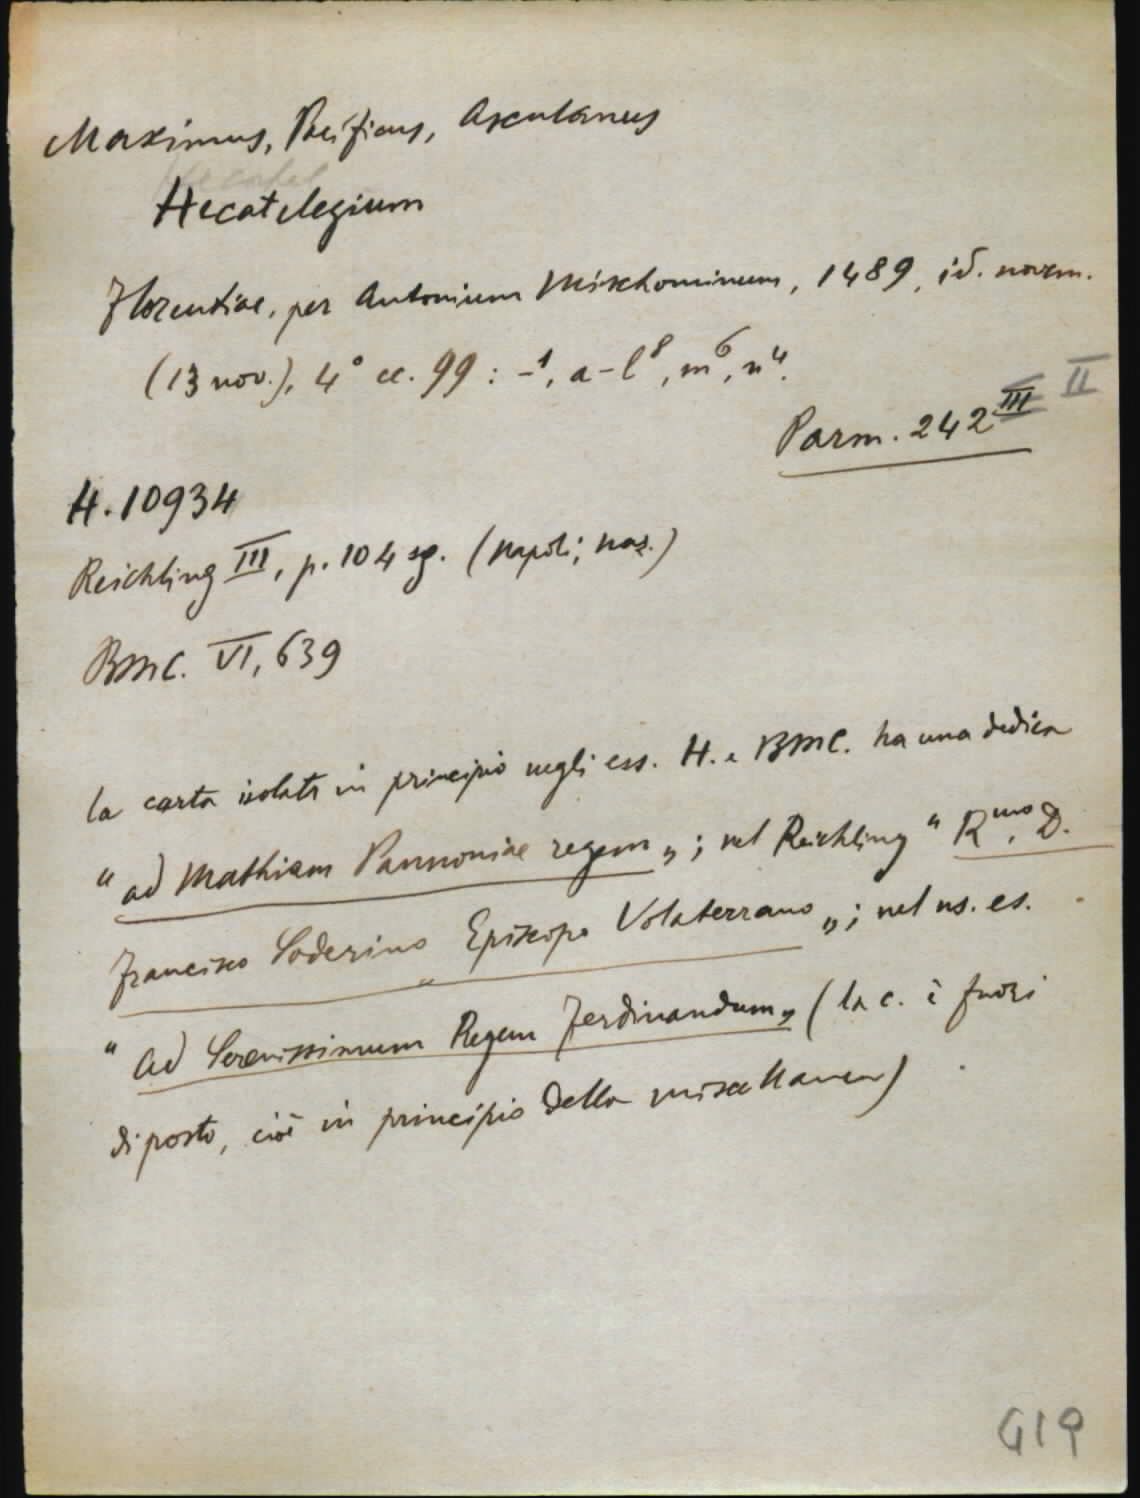 Maximus, Pacificus, Asculanus
Hecatelegium
Florentiae, per Antonium Mischominum, 1489, id. novem.
(13 nov.), 4° cc. 99 : -¹, a-l⁸, m⁶, n⁴.
Parm. 242 III II
H. 10934
Reichling III, p. 104 sg. (Napoli, naz.)
BMC. VI, 639
la carta isolata in principio negli ess. H. e BMC. ha una dedica
"ad Mathiam Pannoniae regem„; nel Reichling "Rmo. D.
Francisco Soderino Episcopo Volaterrano„; nel ns. es.
"Ad Serenissimum Regem Ferdinandum„ (la c. è fuori
di posto, cioè in principio della miscellanea)
G19